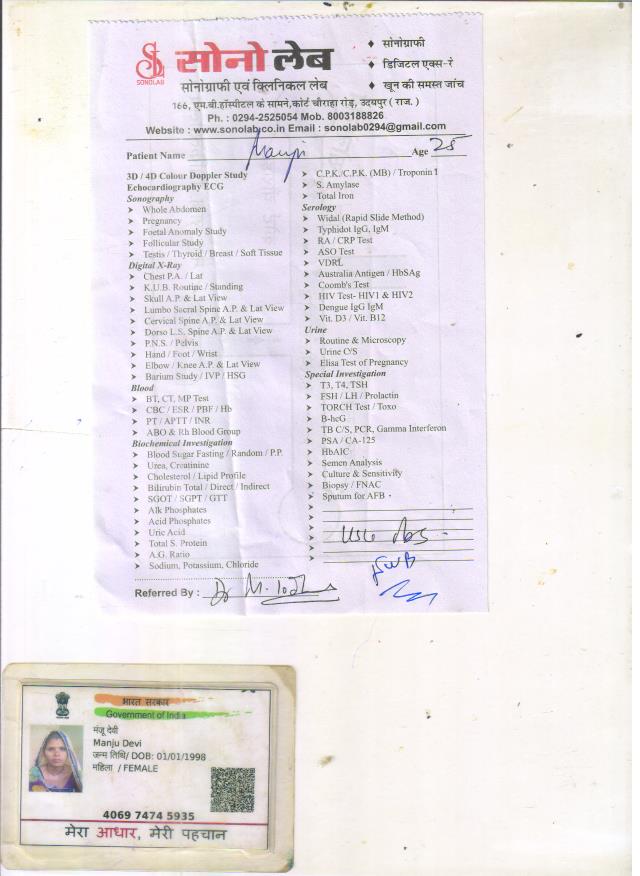 SL
SONOLAB
सोनो लेब
♦ सोनोग्राफी
♦ डिजिटल एक्स-रे
♦ खून की समस्त जांच
सोनोग्राफी एवं क्लिनिकल लेब
166, एम.बी.हॉस्पीटल के सामने,कोर्ट चौराहा रोड़, उदयपुर ( राज. )
Ph. : 0294-2525054 Mob. 8003188826
Website : www.sonolab.co.in Email : sonolab0294@gmail.com
Patient Name Manju Age 25
3D / 4D Colour Doppler Study
Echocardiography ECG
Sonography
➤ Whole Abdomen
➤ Pregnancy
➤ Foetal Anomaly Study
➤ Follicular Study
➤ Testis / Thyroid / Breast / Soft Tissue
Digital X-Ray
➤ Chest P.A. / Lat
➤ K.U.B. Routine / Standing
➤ Skull A.P. & Lat View
➤ Lumbo Sacral Spine A.P. & Lat View
➤ Cervical Spine A.P. & Lat View
➤ Dorso L.S. Spine A.P. & Lat View
➤ P.N.S. / Pelvis
➤ Hand / Foot / Wrist
➤ Elbow / Knee A.P. & Lat View
➤ Barium Study / IVP / HSG
Blood
➤ BT, CT, MP Test
➤ CBC / ESR / PBF / Hb
➤ PT / APTT / INR
➤ ABO & Rh Blood Group
Biochemical Investigation
➤ Blood Sugar Fasting / Random / P.P.
➤ Urea, Creatinine
➤ Cholesterol / Lipid Profile
➤ Bilirubin Total / Direct / Indirect
➤ SGOT / SGPT / GTT
➤ Alk Phosphates
➤ Acid Phosphates
➤ Uric Acid
➤ Total S. Protein
➤ A.G. Ratio
➤ Sodium, Potassium, Chloride
➤ C.P.K./C.P.K. (MB) / Troponin 1
➤ S. Amylase
➤ Total Iron
Serology
➤ Widal (Rapid Slide Method)
➤ Typhidot IgG, IgM
➤ RA / CRP Test
➤ ASO Test
➤ VDRL
➤ Australia Antigen / HbSAg
➤ Coomb's Test
➤ HIV Test- HIV1 & HIV2
➤ Dengue IgG IgM
➤ Vit. D3 / Vit. B12
Urine
➤ Routine & Microscopy
➤ Urine C/S
➤ Elisa Test of Pregnancy
Special Investigation
➤ T3, T4, TSH
➤ FSH / LH / Prolactin
➤ TORCH Test / Toxo
➤ B-hcG
➤ TB C/S, PCR, Gamma Interferon
➤ PSA / CA-125
➤ HbAIC
➤ Semen Analysis
➤ Culture & Sensitivity
➤ Biopsy / FNAC
➤ Sputum for AFB
USG
FWB
Referred By : Dr M. Lodha
भारत सरकार
Government of India
मंजू देवी
Manju Devi
जन्म तिथि/ DOB: 01/01/1998
महिला / FEMALE
4069 7474 5935
मेरा आधार, मेरी पहचान